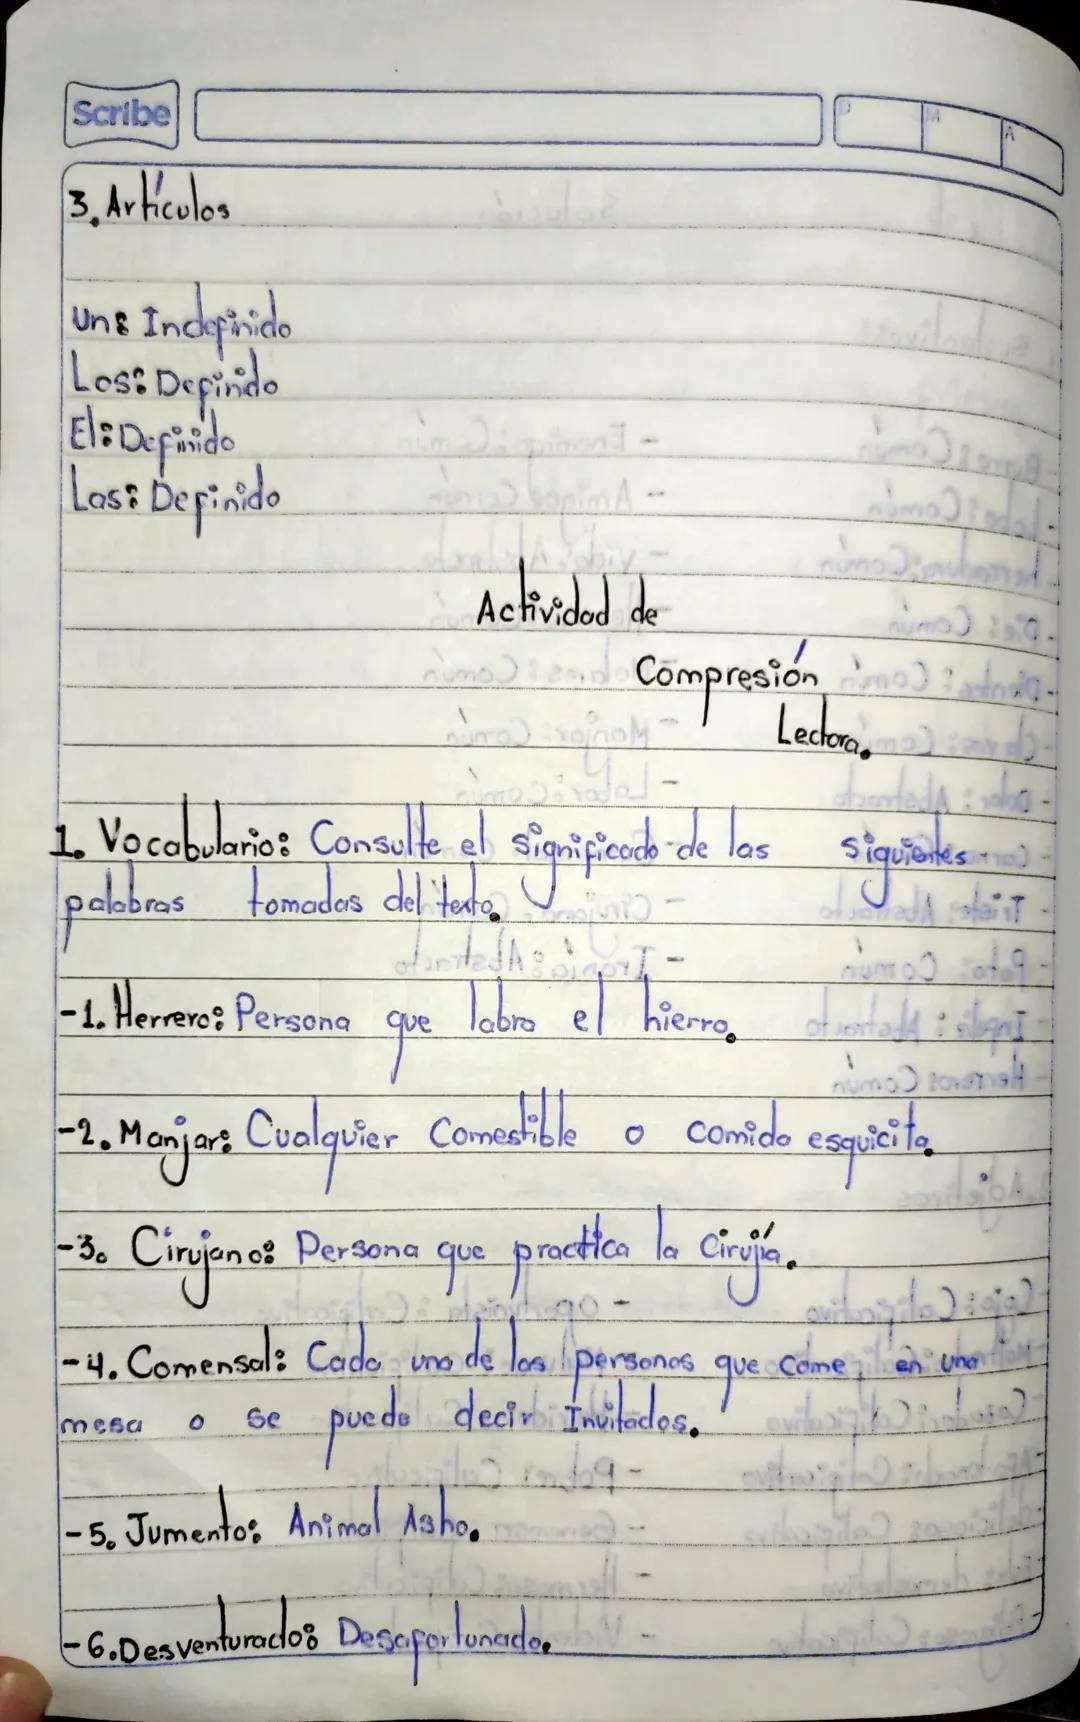 Scribe
D M A
3. Artículos
Un: Indefinido
Los: Definido
El: Definido
Las: Definido
Actividad de
Compresión
Lectora.
1. Vocabulario: Consulte el significado de las siguientes
palabras tomadas del texto.
-1. Herrero: Persona que labra el hierro.
-2. Manjar: Cualquier Comestible o comida esquicita.
-3. Cirujano: Persona que practica la Cirujía.
-4. Comensal: Cada una de las personas que come, en una
mesa o se puede decir Invitados.
-5. Jumento: Animal Asno.
-6. Desventurado: Desafortunado.